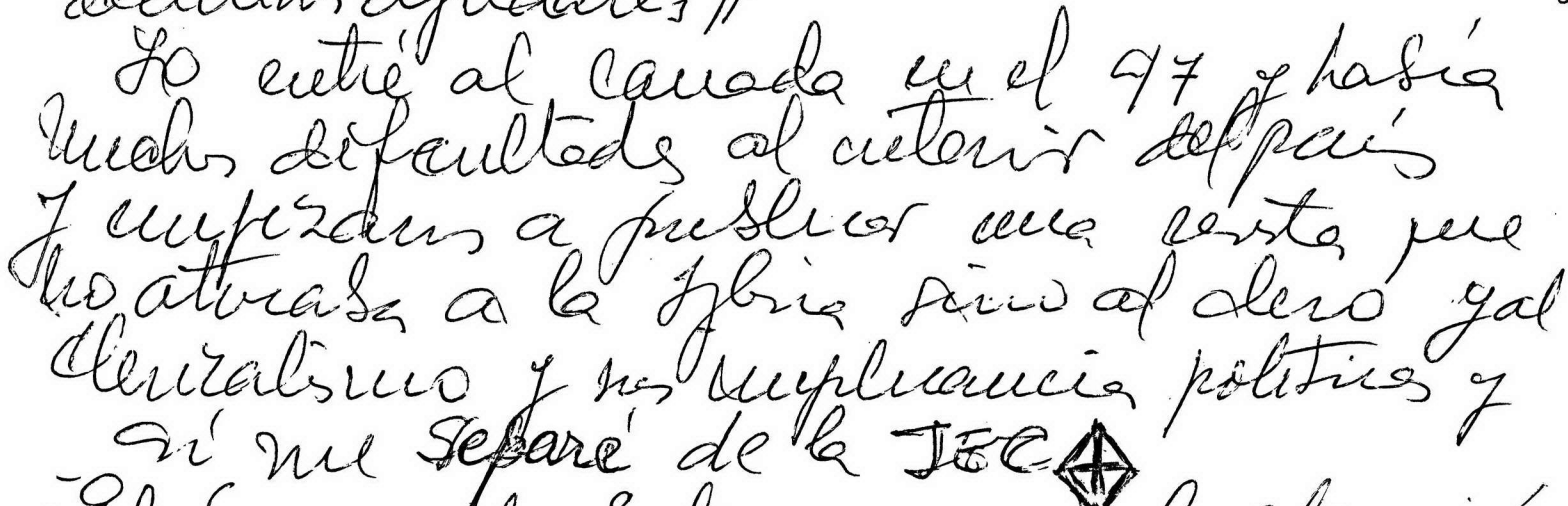 Yo entré al Canada en el 47 y había
muchas dificultades al interior del país
y empezamos a publicar una revista que
no atacaba a la Iglesia sino al clero y al
clericalismo y sus implicancias políticas y
así me separé de la JEC